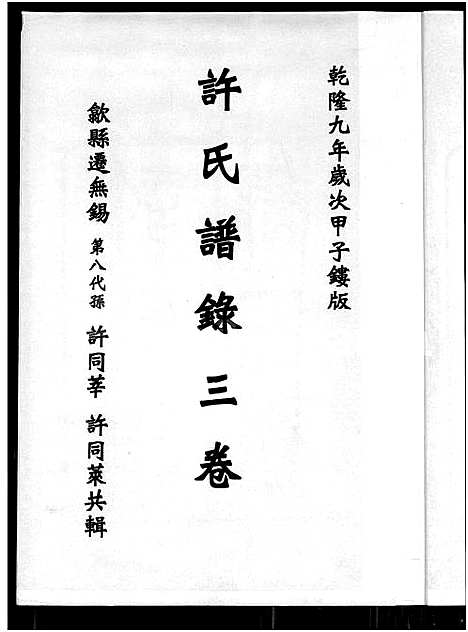 乾隆九年歲次甲子鏤版
許氏譜錄三卷
歙縣遷無錫 第八代孫 許同莘 許同萊共輯